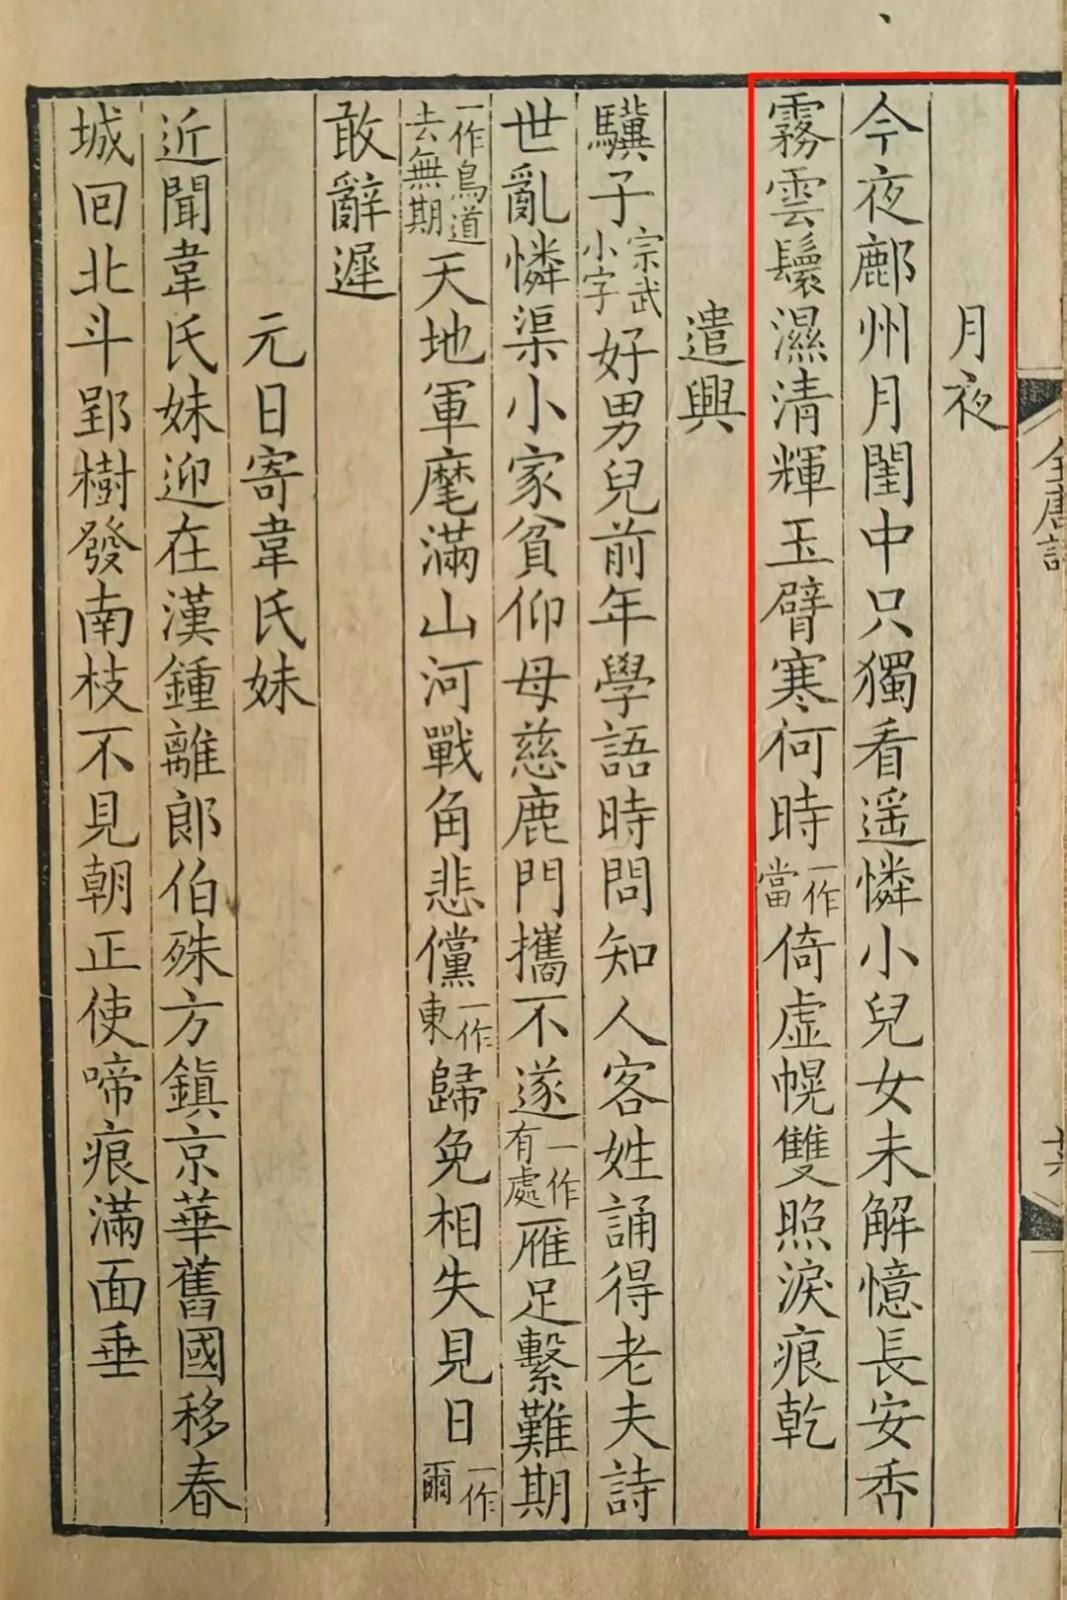 全唐詩
月夜
今夜鄜州月閨中只獨看遥憐小兒女未解憶長安香
霧雲鬟濕清輝玉臂寒何時一作當倚虛幌雙照淚痕乾
遣興
驥子宗武小字好男兒前年學語時問知人客姓誦得老夫詩
世亂憐渠小家貧仰母慈鹿門攜不遂一作有處雁足繫難期
一作鳥道去無期天地軍麾滿山河戰角悲儻一作東歸免相失見日一作爾
敢辭遲
元日寄韋氏妹
近聞韋氏妹迎在漢鍾離郎伯殊方鎮京華舊國移春
城回北斗郢樹發南枝不見朝正使啼痕滿面垂